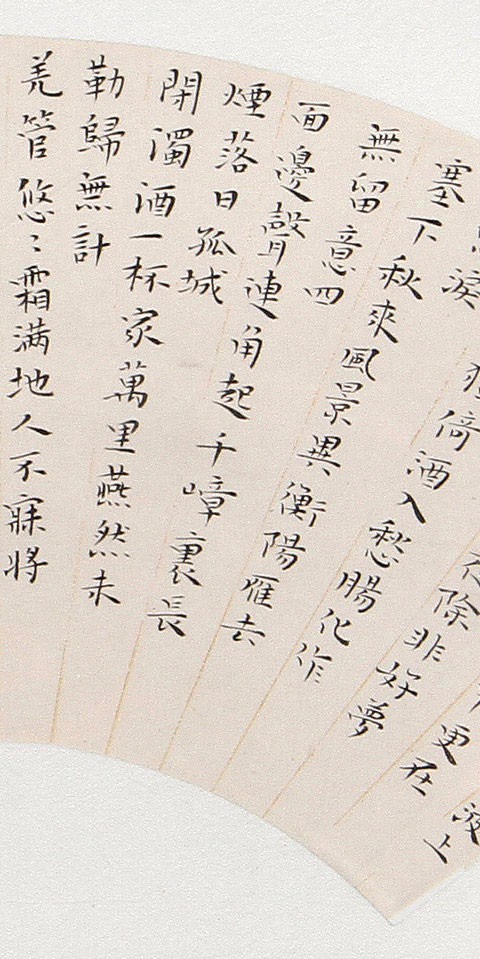 波上
更在
除非好夢
倚酒入愁腸化作
淚
塞下秋來風景異衡陽雁去
無留意四
面邊聲連角起千嶂裏長
煙落日孤城
閉濁酒一杯家萬里燕然未
勒歸無計
羌管悠〻霜满地人不寐將